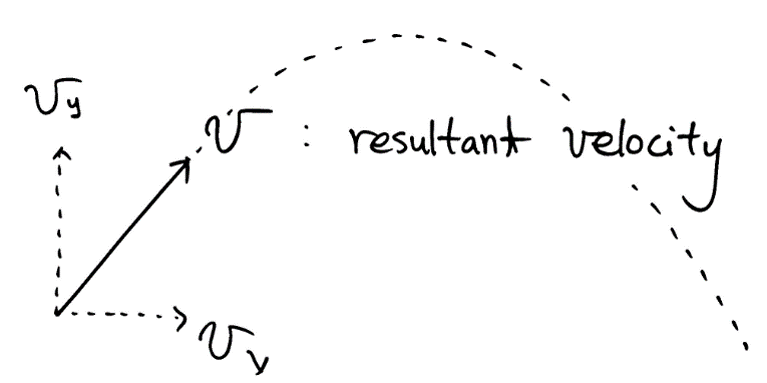 v_y
v : resultant velocity
v_y